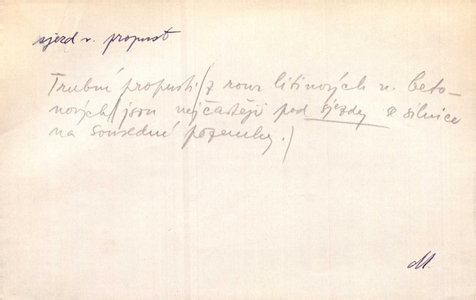 sjezd v. propust
Trubní propusti/z rour litinových n. beto-
nových/jsou nejčastěji pod sjezdy z silnice
na sousedné pozemky./